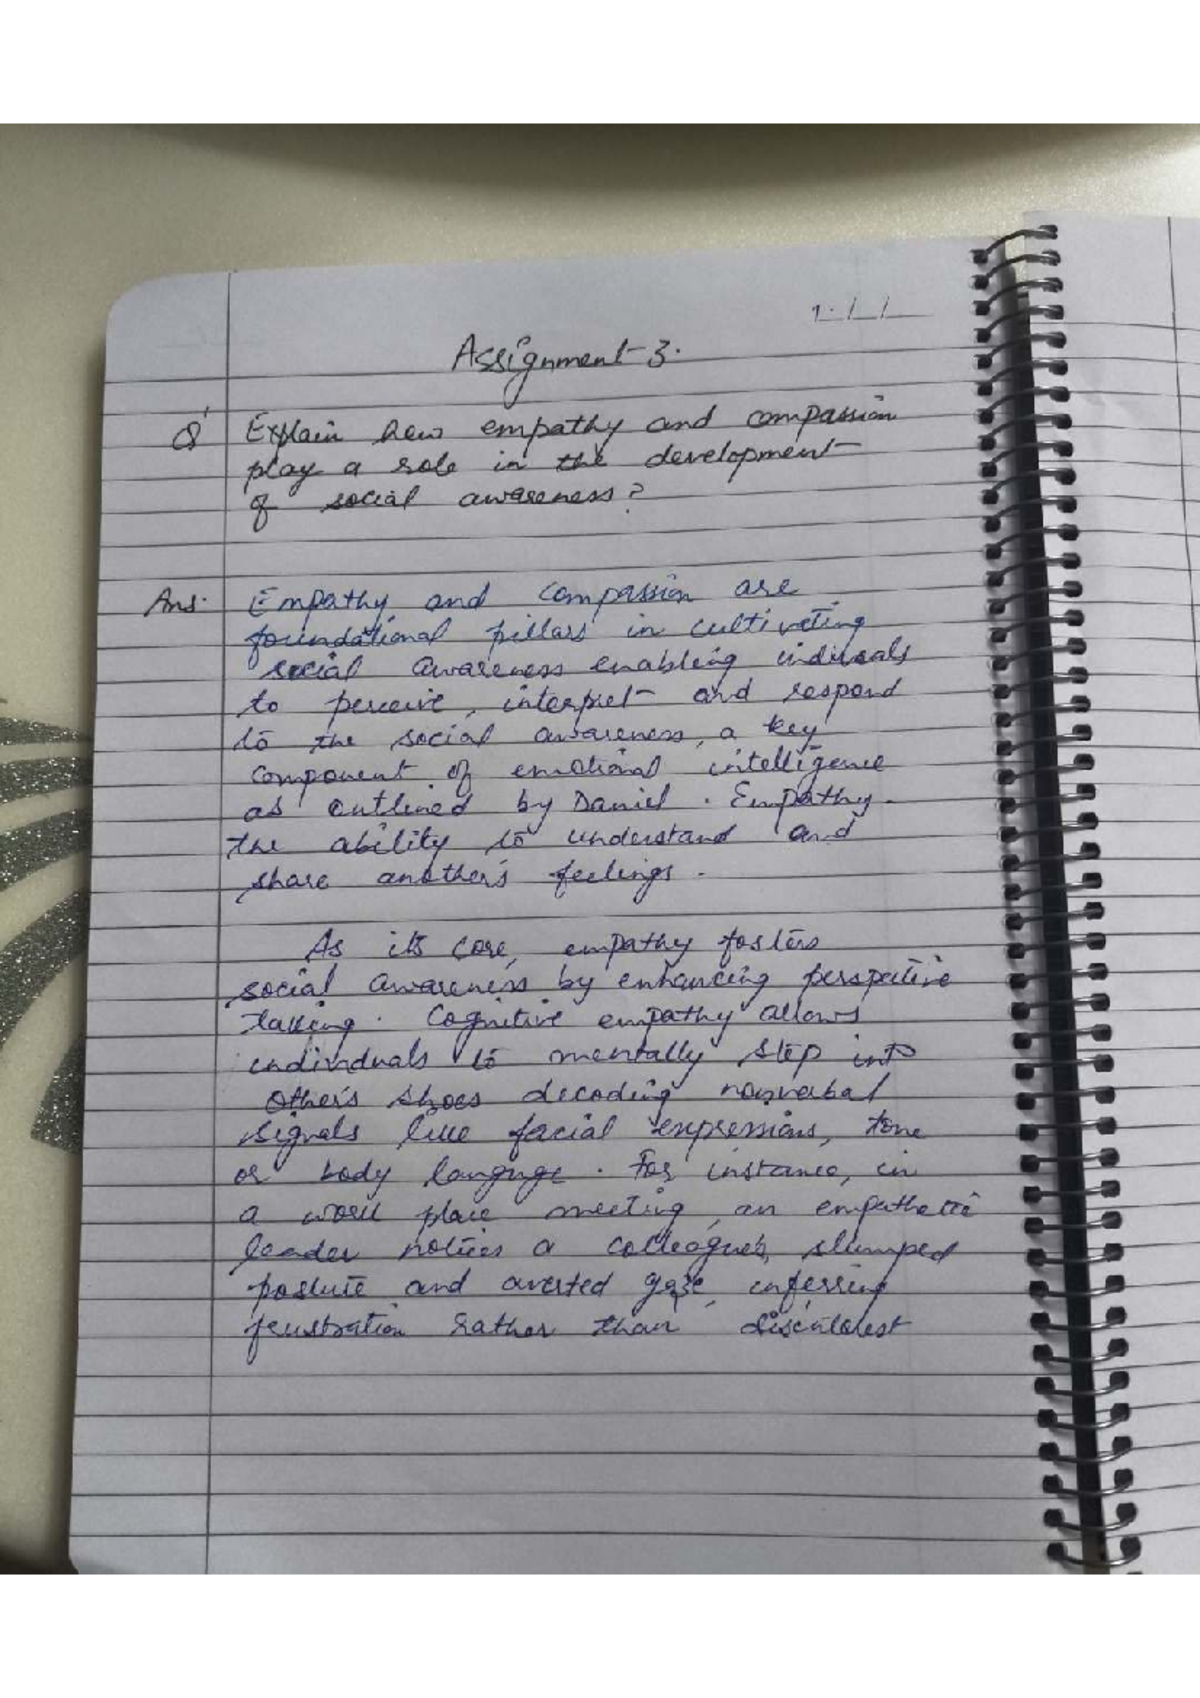 Assignment-3.
Q1 Explain how empathy and compassion
play a role in the development
of social awareness?
Ans. Empathy and compassion are
foundational pillars in cultiveting
social awareness enabling indivuals
to perceive, interpret and respond
to the social awareness, a key
component of emotional intelligence
as outlined by Daniel. Empathy.
the ability to understand and
share another's feelings.
As its core, empathy fosters
social awareness by enhancing perspective
taking. Cognitive empathy allows
individuals to mentally step into
other's shoes decoding nonverbal
signals like facial expressions, tone
or body languge. For instance, in
a work place meeting, an empathetic
leader notices a colleague's, slumped
posture and averted gaze, inferring
frustration rather than